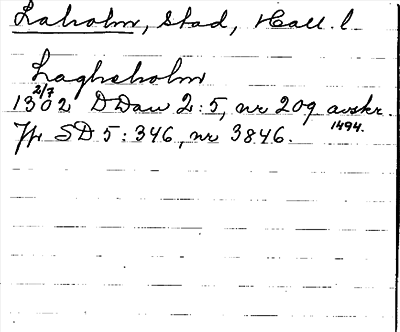 Laholm, Stad, Hall. l.
Lagheholm
2/7
1302 DDan 2:5, nr 209 avskr.
1494.
Jfr SD 5:346, nr 3846.